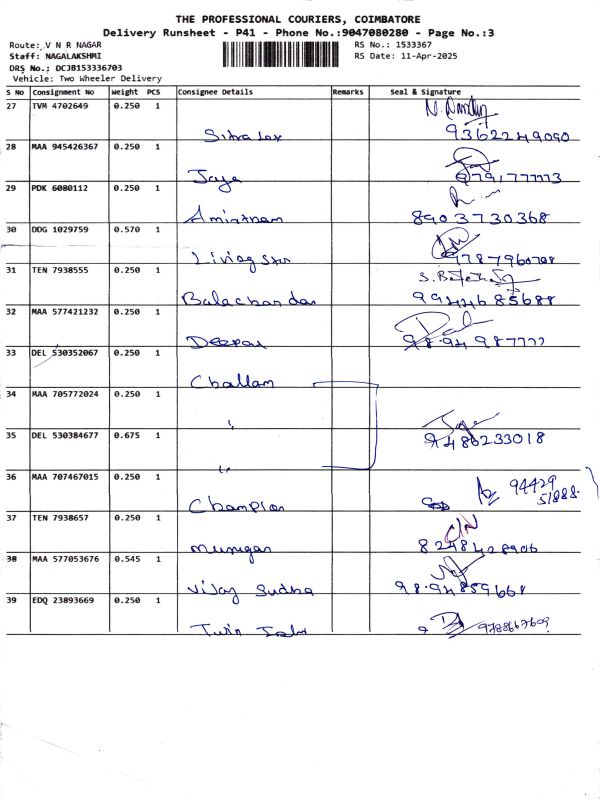 THE PROFESSIONAL COURIERS, COIMBATORE
Delivery Runsheet - P41 - Phone No.:9047080280 - Page No.:3
Route: V N R NAGAR
RS No.: 1533367
Staff: NAGALAKSHMI
RS Date: 11-Apr-2025
DRS No.: DCJB153336703
Vehicle: Two Wheeler Delivery
S No Consignment No Weight PCS Consignee Details Remarks Seal & Signature
27 TVM 4702649 0.250 1
9362249090
28 MAA 945426367 0.250 1
Jaya
29 PDK 6080112 0.250 1
Amirtham 8903730368
30 DDG 1029759 0.570 1
Livingston
31 TEN 7938555 0.250 1
Balachandar 9944685688
32 MAA 577421232 0.250 1
Deepak
33 DEL 530352067 0.250 1
Challam
34 MAA 705772024 0.250 1
"
35 DEL 530384677 0.675 1
9486233018
"
36 MAA 707467015 0.250 1
94429
51888.
Champion
37 TEN 7938657 0.250 1
Murugan
38 MAA 577053676 0.545 1
Vijay Sudha 9894859668
39 EDQ 23893669 0.250 1